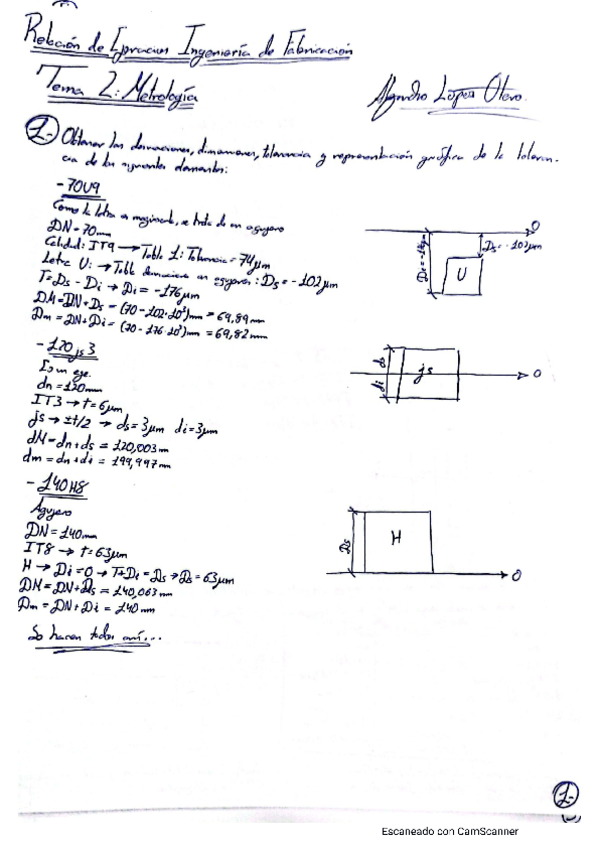 Relación de Ejercicios Ingeniería de Fabricación
Tema 2: Metrología
Alejandro López Otero.
1.- Obtener las desviaciones, dimensiones, tolerancia y representación gráfica de la toleran-
cia de los siguientes elementos:
- 70U9
Como la letra es mayúscula, se trata de un agujero
DN = 70mm
Calidad: IT9 → Tabla 1: Tolerancia = 74μm
Letra U: → Tabla desviaciones en agujeros: Ds = -102μm
T = Ds - Di → Di = -176μm
DM = DN + Ds = (70 - 102·10³)mm = 69,89mm
Dm = DN + Di = (70 - 176·10³)mm = 69,82mm
0
Di = -176μm
Ds = -102μm
U
- 120js3
Es un eje.
dn = 120mm
IT3 → t = 6μm
js → ±t/2 → ds = 3μm di = 3μm
dM = dn + ds = 120,003m
dm = dn + di = 199,997mm
ds
di
js
0
- 140H8
Agujero
DN = 140mm
IT8 → t = 63μm
H → Di = 0 → T + Di = Ds → Ds = 63μm
DM = DN + Ds = 140,063mm
Dm = DN + Di = 140mm
Ds
H
0
Se hacen todos así...
1-
Escaneado con CamScanner